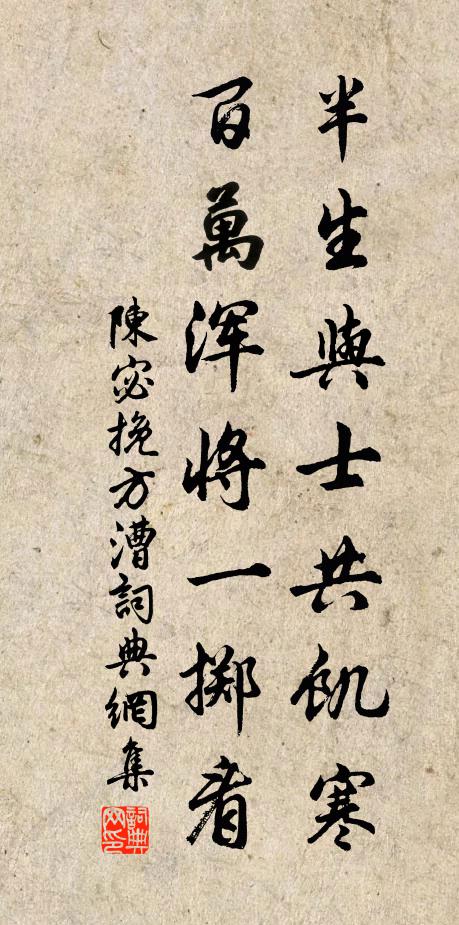 半生與士共飢寒
百萬渾將一擲看
陳宓挽方漕詞典網集
詞典網印